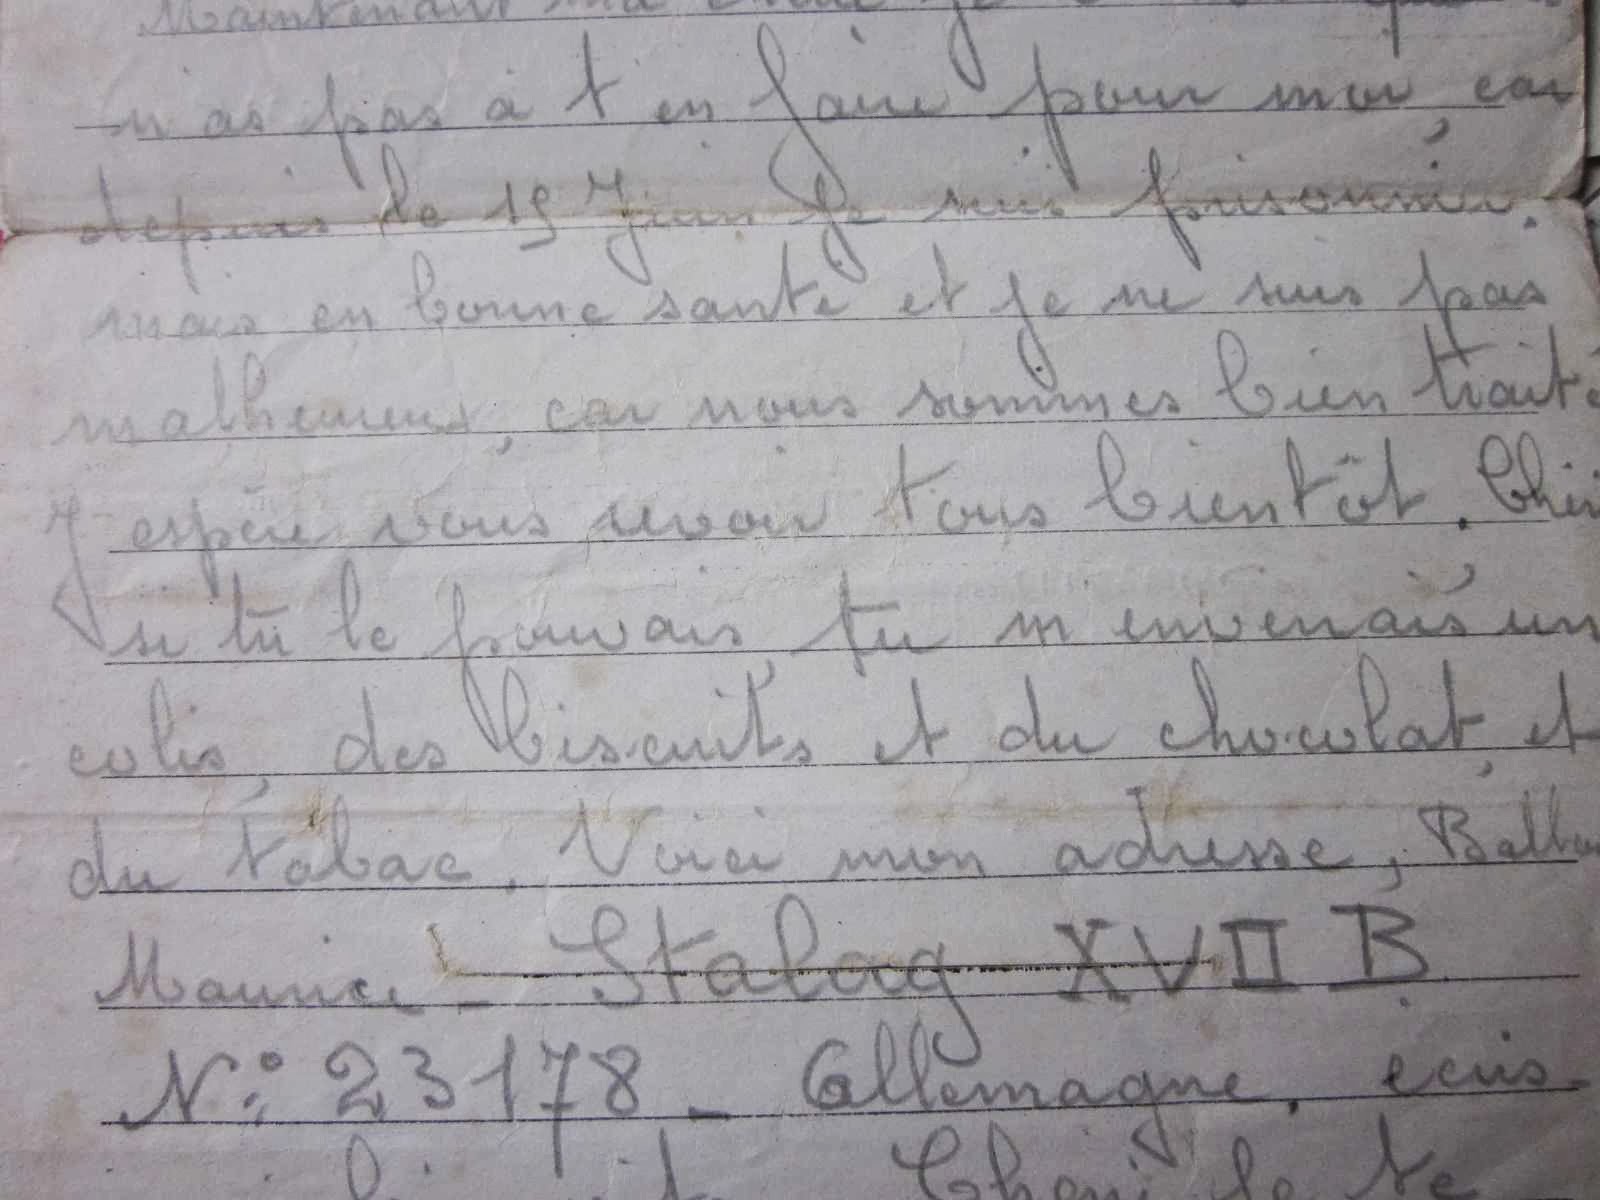 Maintenant ma
n as pas à t en faire pour moi car
depuis le 19 Juin Je suis prisonnier,
mais en bonne santé et je ne suis pas
malheureux, car nous sommes bien traité
J espère vous revoir tous bientôt. Chéri
si tu le pouvais, tu m envenais un
colis, des biscuits et du chocolat, et
du tabac. Voici mon adresse,
Maurice - Stalag XVII B
N°: 23178 - Allemagne. ecris-
Cheri je te